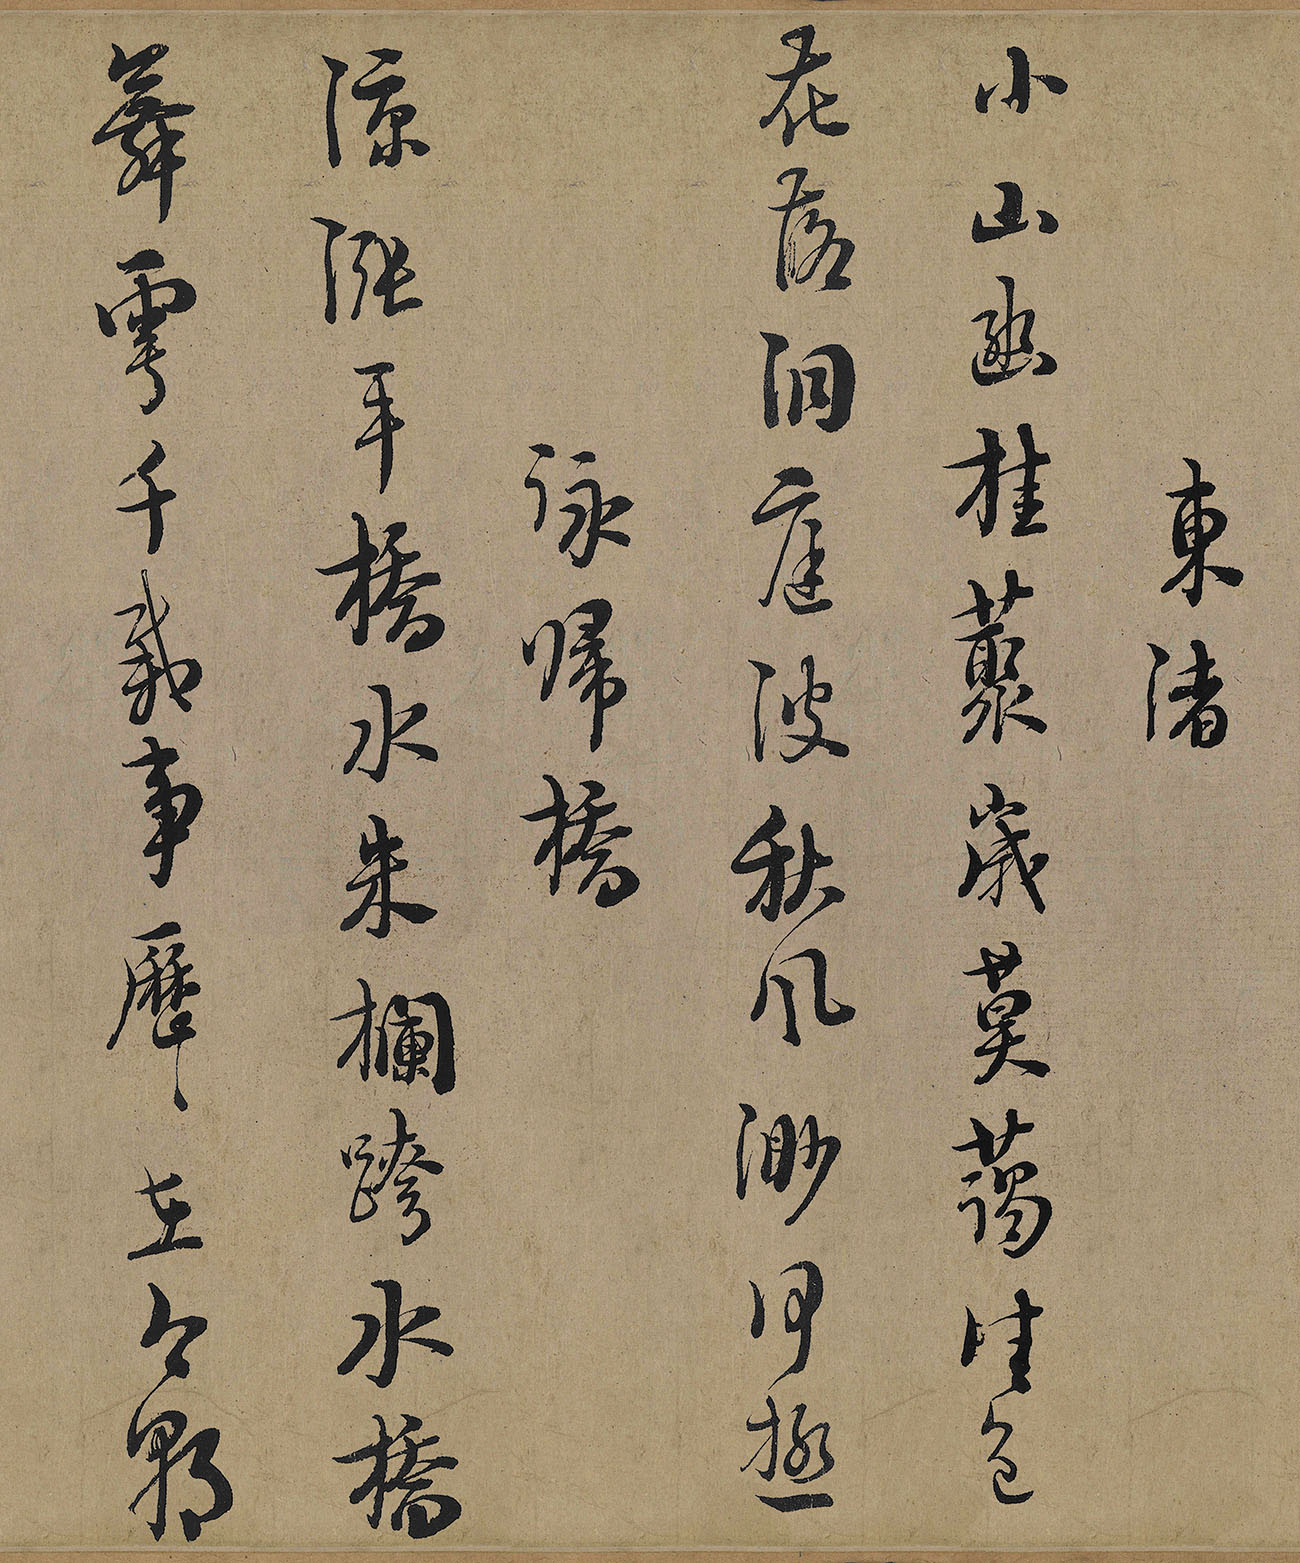 東渚
小山幽桂藂歲莫藹佳色
花落洞庭波秋風渺何極
詠歸橋
涼漲平橋水朱欄跨水橋
舞雩千載事歷〻在今朝